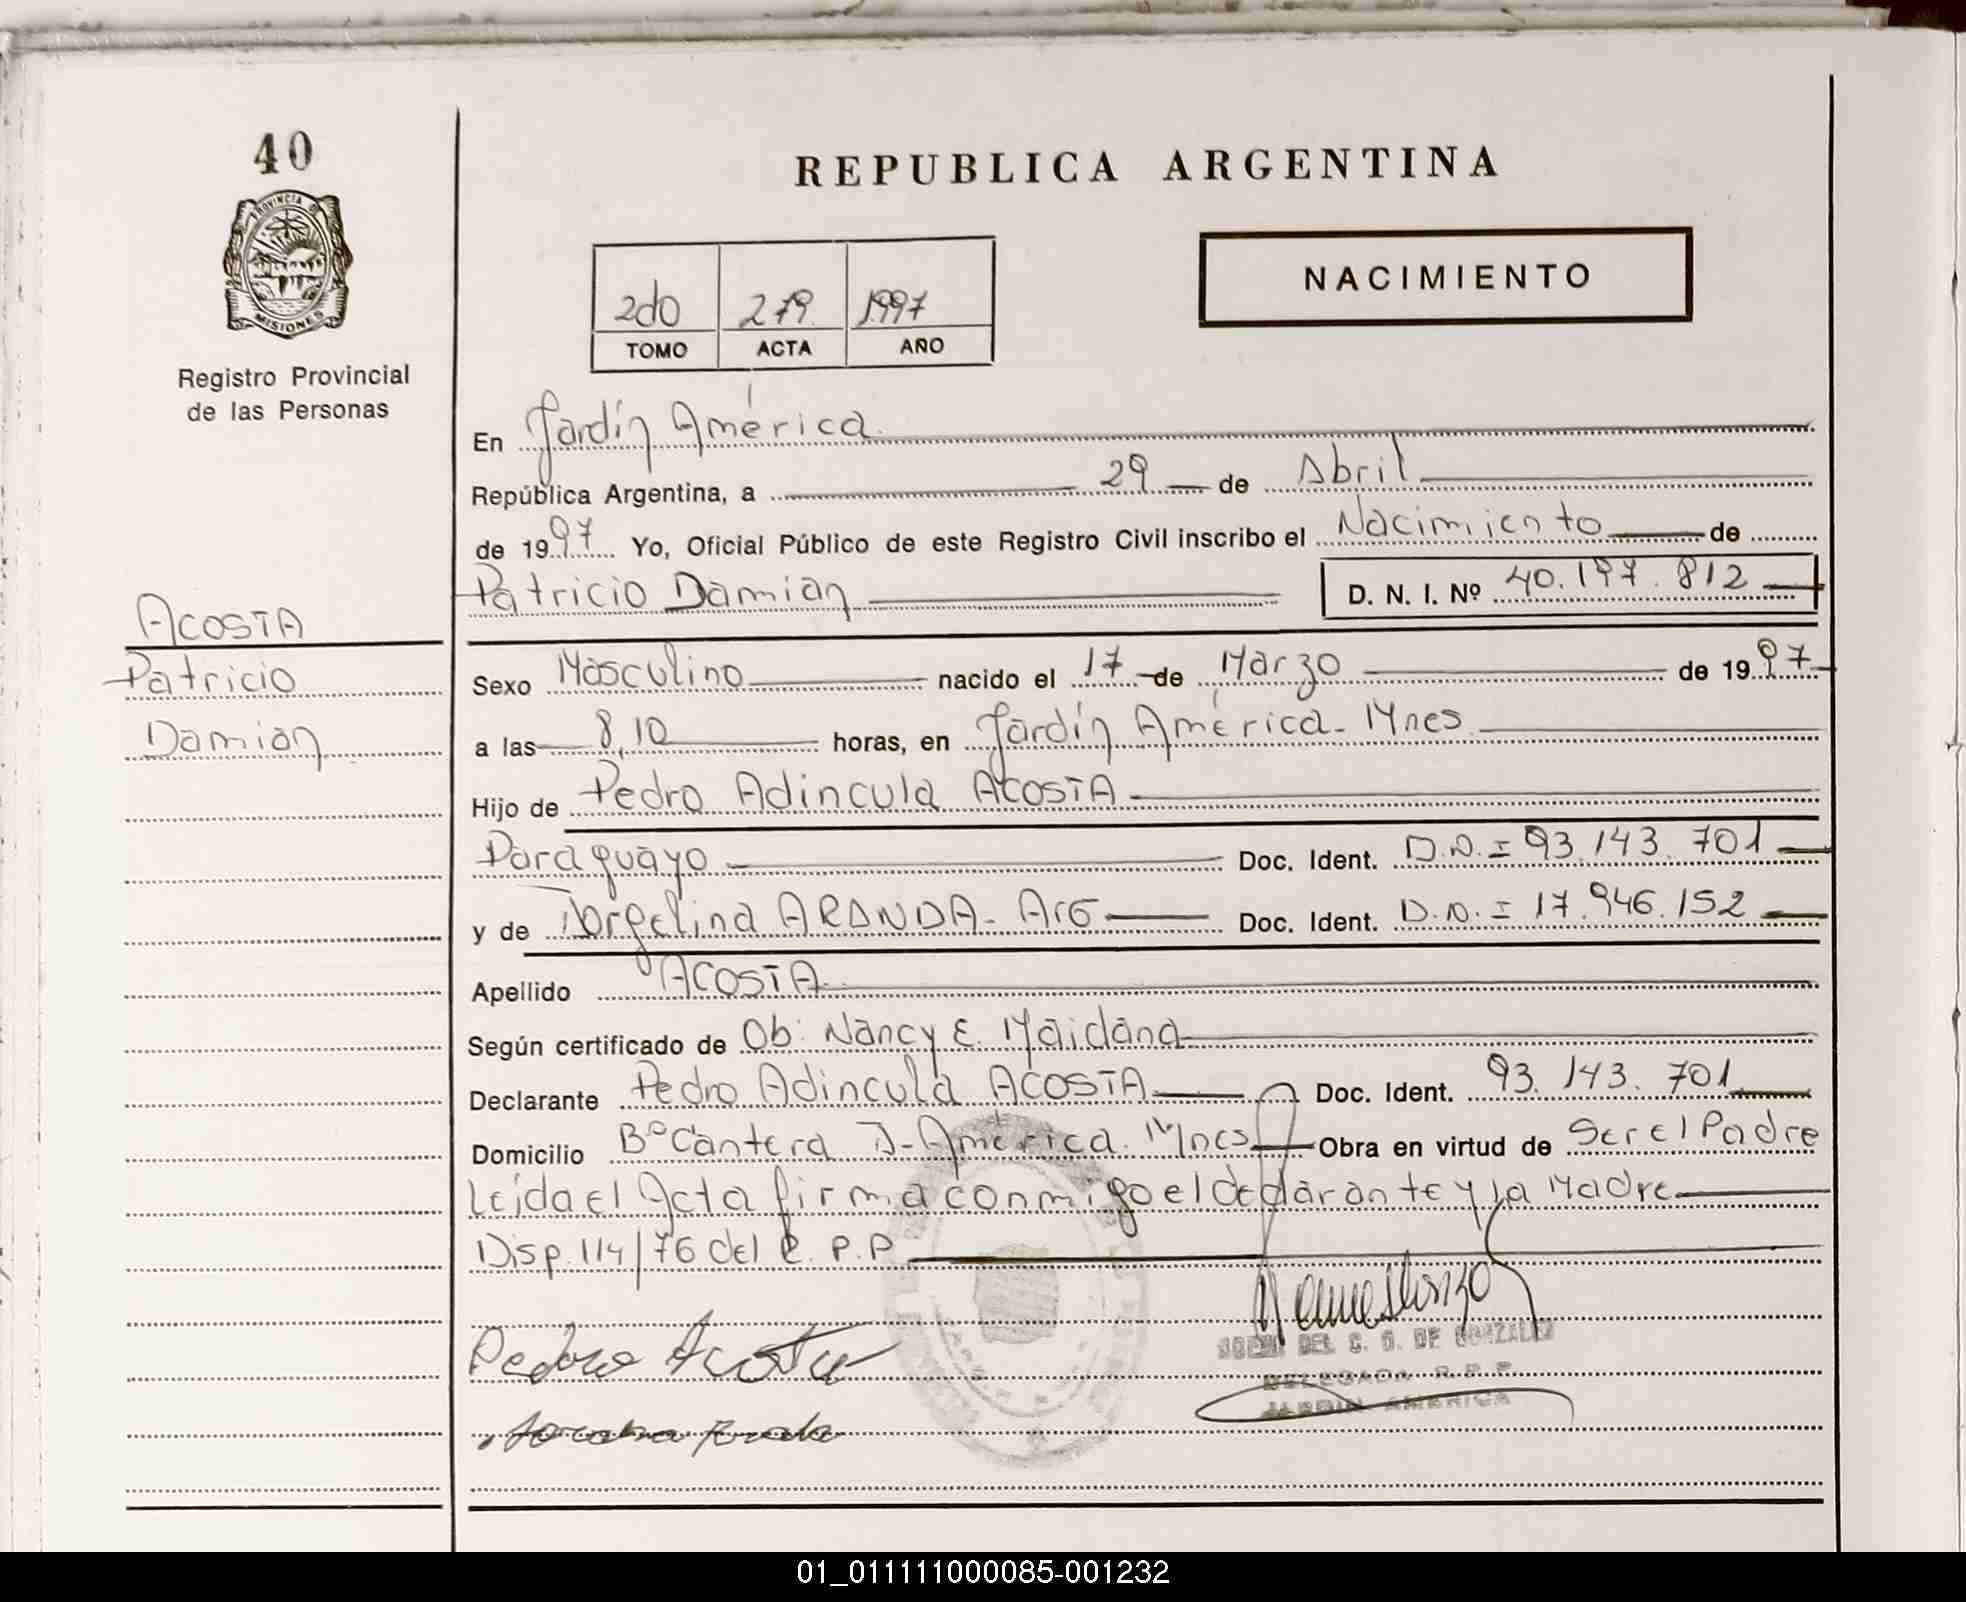 40
PROVINCIA DE
MISIONES
Registro Provincial
de las Personas
REPUBLICA ARGENTINA
NACIMIENTO
2do 279. 1997
TOMO ACTA AÑO
En Jardín América.
República Argentina, a 29 de Abril
de 1997 Yo, Oficial Público de este Registro Civil inscribo el Nacimiento de
Patricio Damian D. N. I. Nº 40.197.812
ACOSTA
Patricio
Damian
Sexo Masculino nacido el 17 de Marzo de 1997
a las 8,10 horas, en Jardín América - Mnes.
Hijo de Pedro Adincula ACOSTA
Paraguayo Doc. Ident. D.N.I 93.143.701
y de ARANDA - Arg Doc. Ident. D.N.I 17.946.152
Apellido ACOSTA
Según certificado de Ob: Nancy E. Maidana
Declarante Pedro Adincula ACOSTA Doc. Ident. 93.143.701
Domicilio Bº Cantera J-América. Mnes Obra en virtud de Ser el Padre
Leída el Acta firma conmigo el declarante y la Madre
Disp. 114/76 del R.P.P
Pedro Acosta
DEL C. G. DE GONZALEZ
DELEGADA R.P.P.
JARDIN AMERICA
01_011111000085-001232